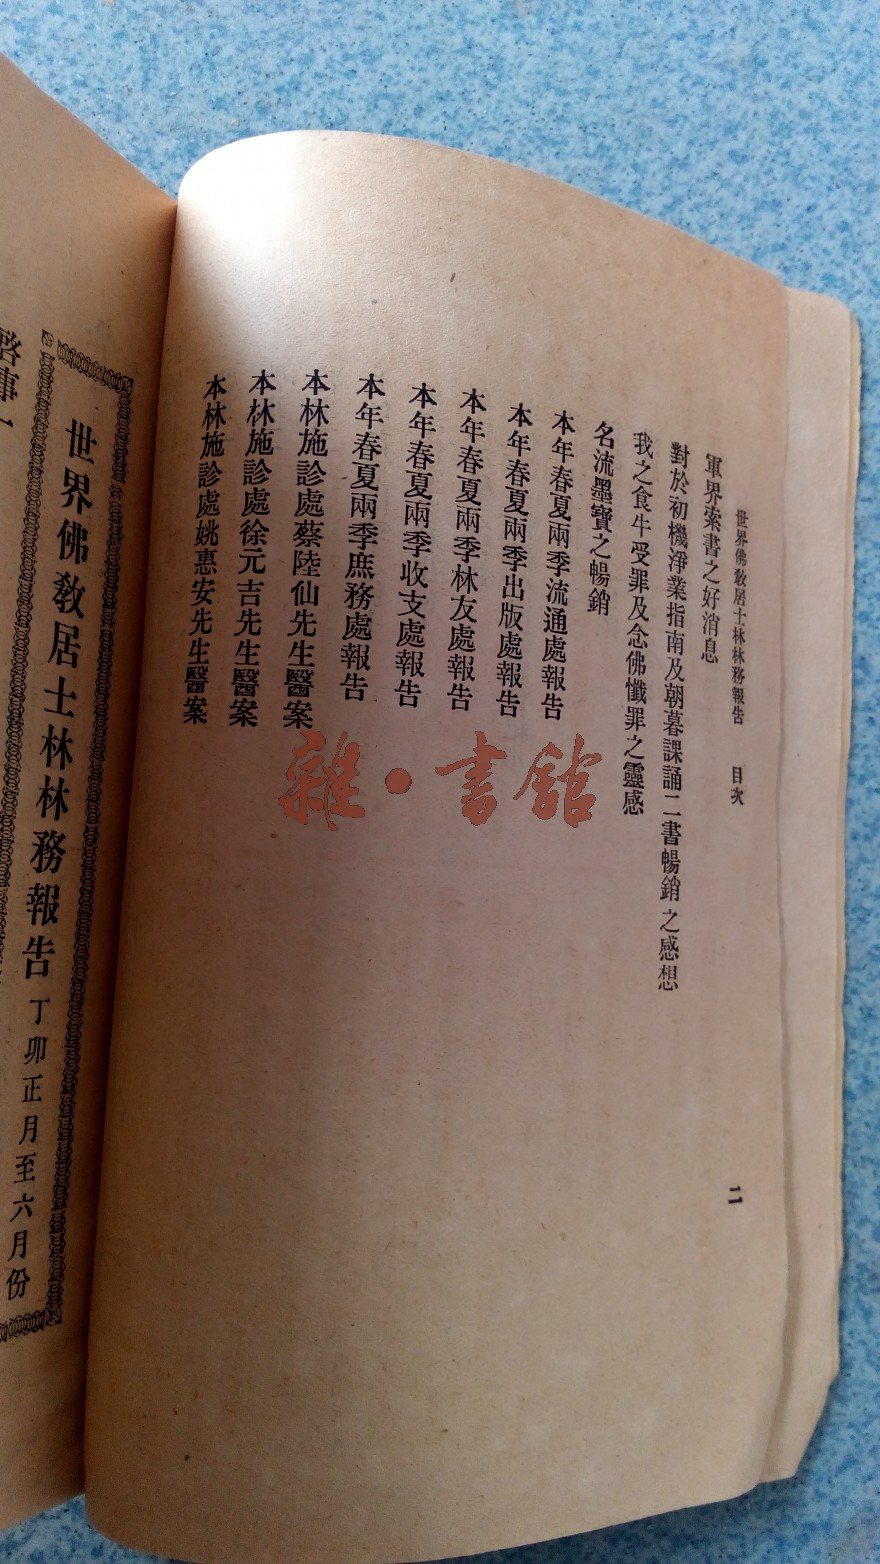 世界佛敎居士林林務報告　目次
二
軍界索書之好消息
對於初機淨業指南及朝暮課誦二書暢銷之感想
我之食牛受罪及念佛懺罪之靈感
名流墨寶之暢銷
本年春夏兩季流通處報告
本年春夏兩季出版處報告
本年春夏兩季林友處報告
本年春夏兩季收支處報告
本年春夏兩季庶務處報告
本林施診處蔡陸仙先生醫案
本林施診處徐元吉先生醫案
本林施診處姚惠安先生醫案
雜·書館
世界佛敎居士林林務報告 丁卯正月至六月份
啓事一